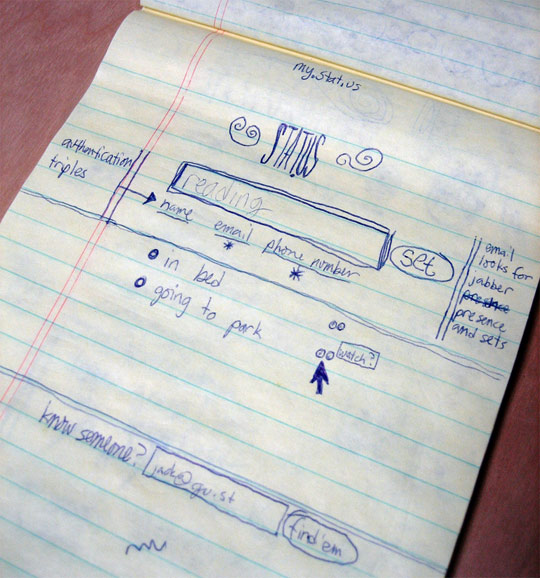 my.stat.us
STATUS
authentication
triples
reading
name
email
phone number
set
email
looks for
jabber
presence
presence
and sets
in bed
going to park
watch?
know someone?
find 'em